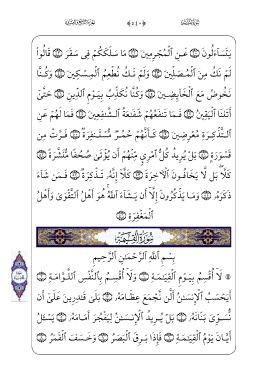 يَتَسَآءَلُونَ ۝ عَنِ ٱلْمُجْرِمِينَ ۝ مَا سَلَكَكُمْ فِى سَقَرَ ۝ قَالُوا۟
لَمْ نَكُ مِنَ ٱلْمُصَلِّينَ ۝ وَلَمْ نَكُ نُطْعِمُ ٱلْمِسْكِينَ ۝ وَكُنَّا
نَخُوضُ مَعَ ٱلْخَآئِضِينَ ۝ وَكُنَّا نُكَذِّبُ بِيَوْمِ ٱلدِّينِ ۝ حَتَّىٰٓ
أَتَىٰنَا ٱلْيَقِينُ ۝ فَمَا تَنفَعُهُمْ شَفَٰعَةُ ٱلشَّٰفِعِينَ ۝ فَمَا لَهُمْ عَنِ
ٱلتَّذْكِرَةِ مُعْرِضِينَ ۝ كَأَنَّهُمْ حُمُرٌ مُّسْتَنفِرَةٌ ۝ فَرَّتْ مِن
قَسْوَرَةٍۭ ۝ بَلْ يُرِيدُ كُلُّ ٱمْرِئٍ مِّنْهُمْ أَن يُؤْتَىٰ صُحُفًا مُّنَشَّرَةً ۝
كَلَّا ۖ بَل لَّا يَخَافُونَ ٱلْءَاخِرَةَ ۝ كَلَّآ إِنَّهُۥ تَذْكِرَةٌ ۝ فَمَن شَآءَ
ذَكَرَهُۥ ۝ وَمَا يَذْكُرُونَ إِلَّآ أَن يَشَآءَ ٱللَّهُ ۚ هُوَ أَهْلُ ٱلتَّقْوَىٰ وَأَهْلُ
ٱلْمَغْفِرَةِ ۝
سُورَةُ القِيَامَةِ
بِسْمِ ٱللَّهِ ٱلرَّحْمَٰنِ ٱلرَّحِيمِ
لَآ أُقْسِمُ بِيَوْمِ ٱلْقِيَٰمَةِ ۝ وَلَآ أُقْسِمُ بِٱلنَّفْسِ ٱللَّوَّامَةِ ۝
أَيَحْسَبُ ٱلْإِنسَٰنُ أَلَّن نَّجْمَعَ عِظَامَهُۥ ۝ بَلَىٰ قَٰدِرِينَ عَلَىٰٓ أَن
نُّسَوِّىَ بَنَانَهُۥ ۝ بَلْ يُرِيدُ ٱلْإِنسَٰنُ لِيَفْجُرَ أَمَامَهُۥ ۝ يَسْـَٔلُ
أَيَّانَ يَوْمُ ٱلْقِيَٰمَةِ ۝ فَإِذَا بَرِقَ ٱلْبَصَرُ ۝ وَخَسَفَ ٱلْقَمَرُ ۝